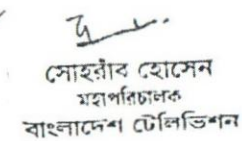 সোহরাব হোসেন
মহাপরিচালক
বাংলাদেশ টেলিভিশন